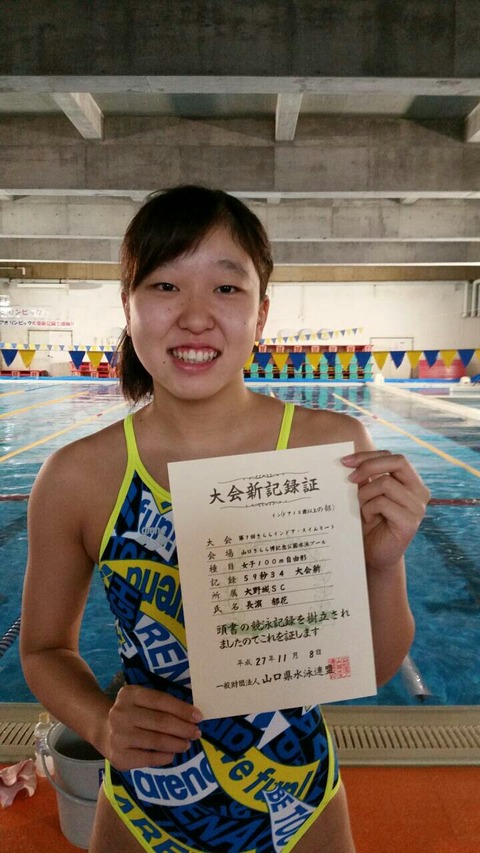 大会新記録証
大会 第7回きららインドア・スイムミート
会場 山口きらら博記念公園水泳プール
種目 女子100m自由形
記録 59秒34 大会新
所属 大野城SC
氏名 長濱 郁花
頭書の競泳記録を樹立され
ましたのでこれを証します
平成 27年 11月 8日
一般財団法人 山口県水泳連盟
arena
ARENA